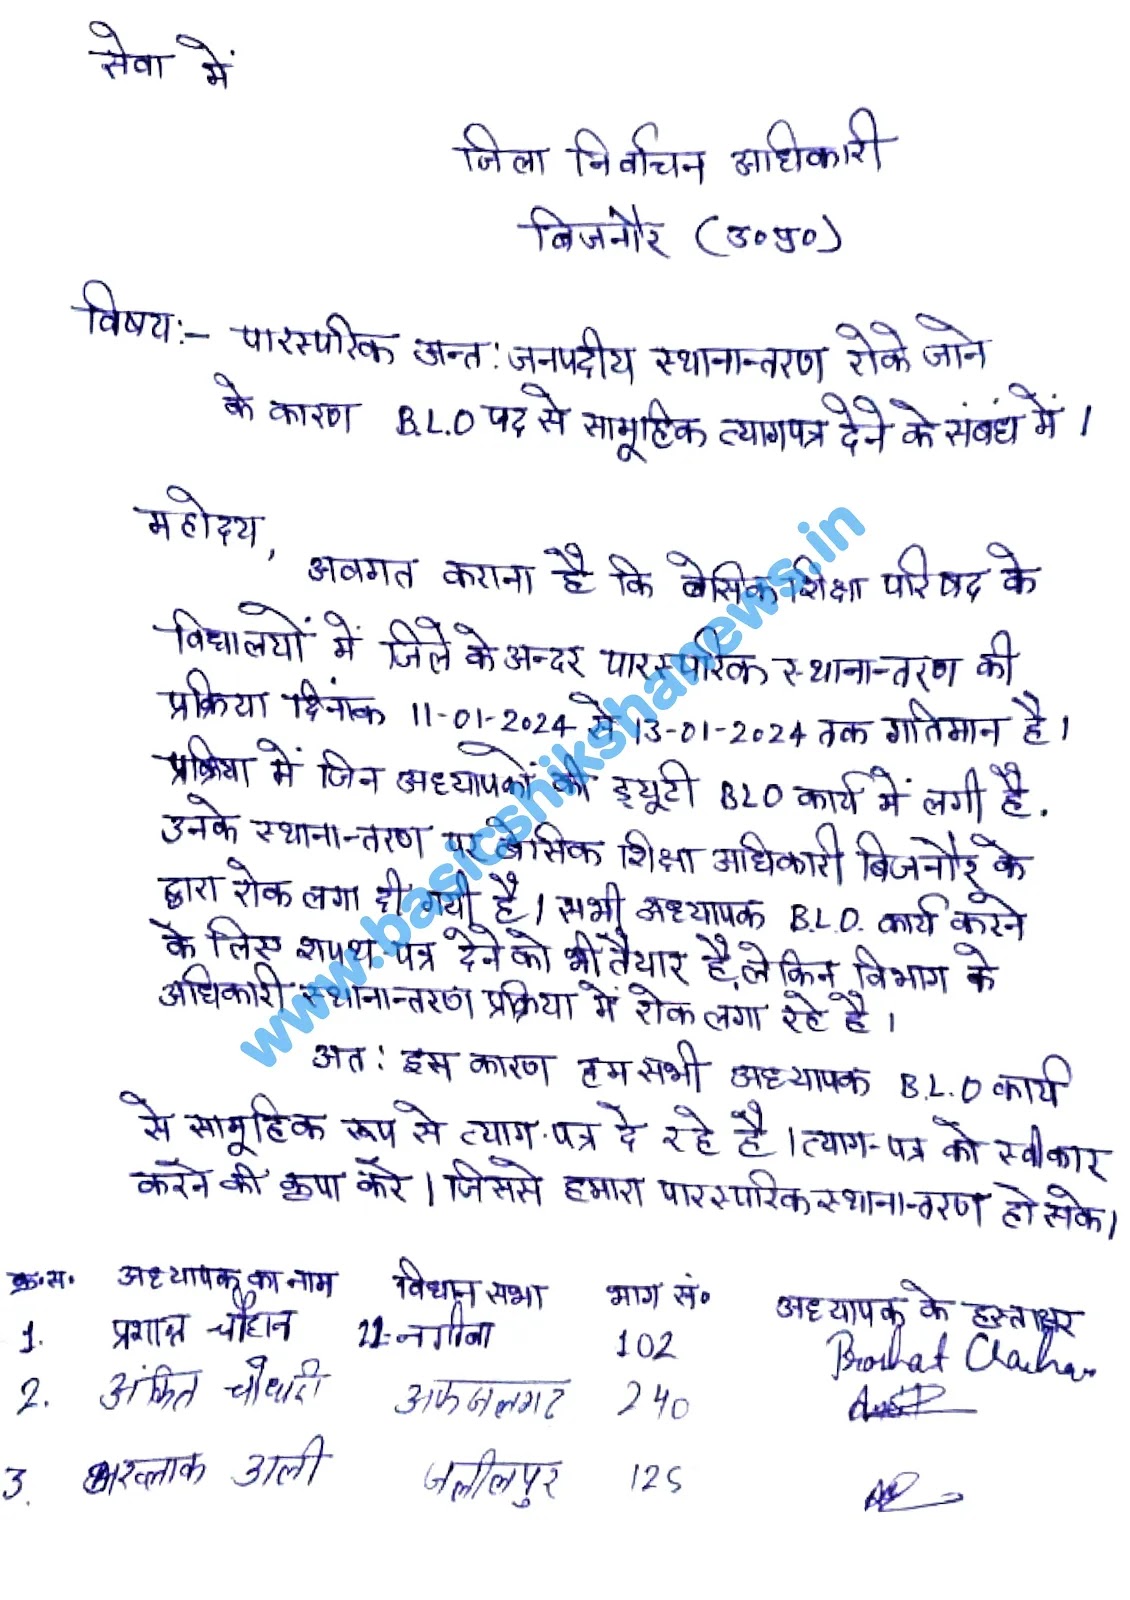 सेवा में
जिला निर्वाचन अधिकारी
बिजनौर (उ०प्र०)
विषय:- पारस्परिक अन्त: जनपदीय स्थानान्तरण रोके जाने
के कारण B.L.O पद से सामूहिक त्यागपत्र देने के संबंध में।
महोदय,
अवगत कराना है कि बेसिक शिक्षा परिषद के
विद्यालयों में जिले के अन्दर पारस्परिक स्थानान्तरण की
प्रक्रिया दिनांक 11-01-2024 से 13-01-2024 तक गतिमान है।
प्रक्रिया में जिन अध्यापकों की ड्यूटी BLO कार्य में लगी है.
उनके स्थानान्तरण पर बेसिक शिक्षा अधिकारी बिजनौर के
द्वारा रोक लगा दी गयी है। सभी अध्यापक B.L.O. कार्य करने
के लिए शपथ-पत्र देने को भी तैयार है, लेकिन विभाग के
अधिकारी स्थानान्तरण प्रक्रिया में रोक लगा रहे है।
अत: इस कारण हम सभी अध्यापक B.L.O कार्य
से सामूहिक रूप से त्याग-पत्र दे रहे है। त्याग-पत्र को स्वीकार
करने की कृपा करे। जिससे हमारा पारस्परिक स्थानान्तरण हो सके।
क्र.स. अध्यापक का नाम विधान सभा भाग सं० अध्यापक के हस्ताक्षर
1. प्रशान्त चौहान नगीना 102
2. अंकित चौधरी अफजलगढ 240
3. अख्लाक अली जलीलपुर 125
www.basicshikshanews.in